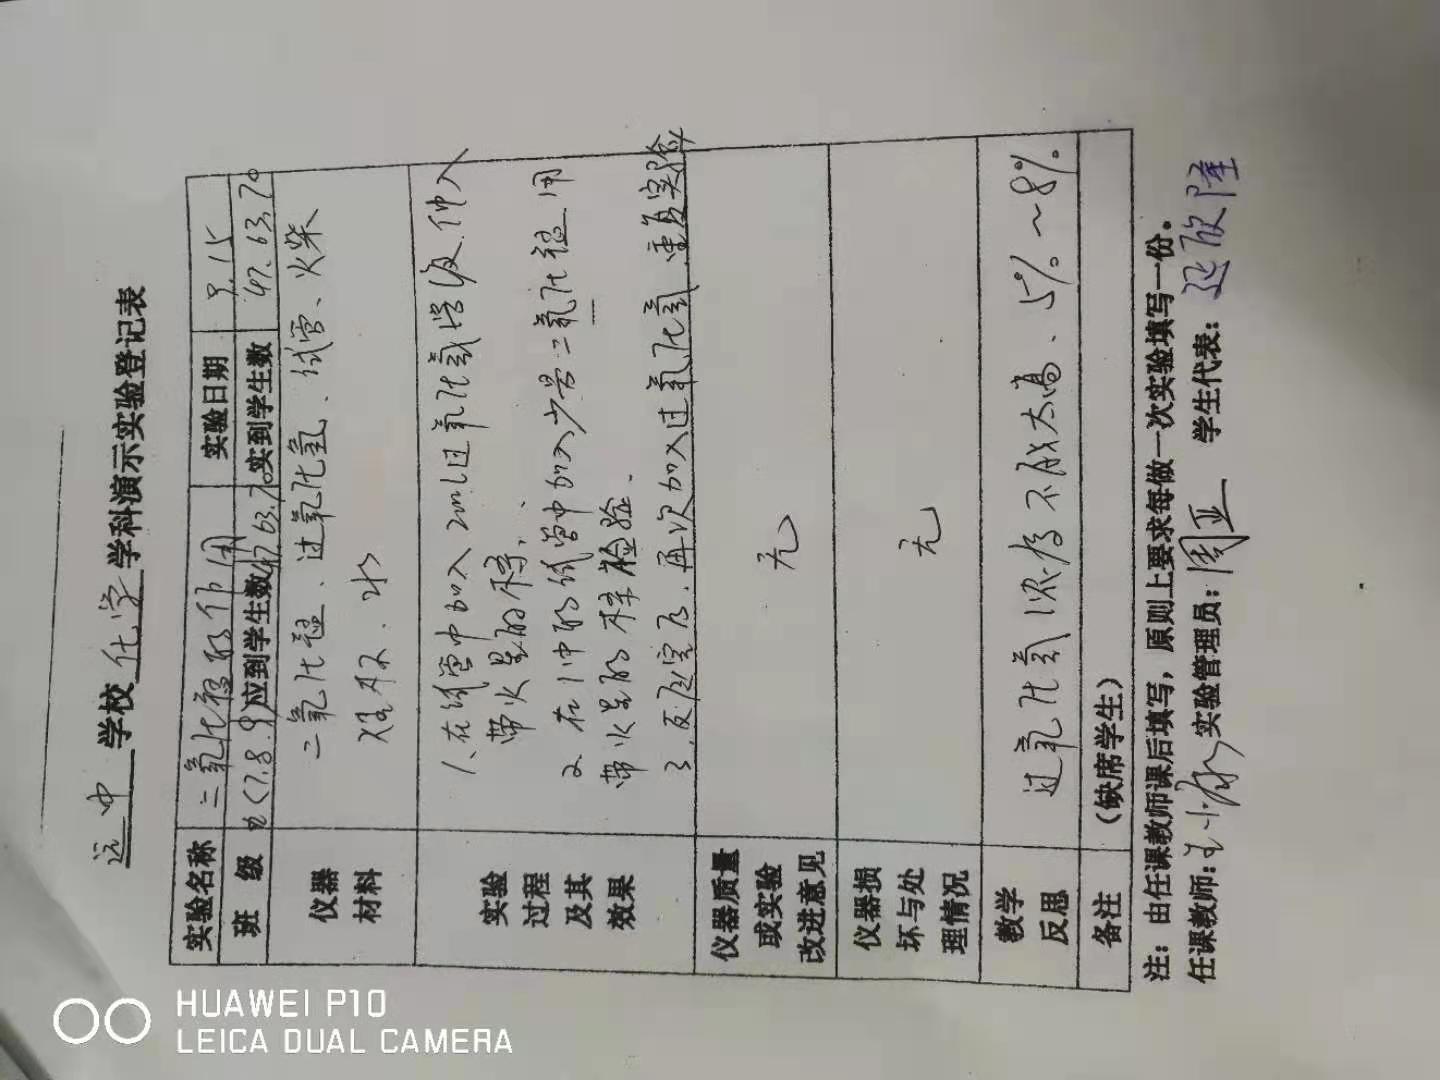 远中学校化学学科演示实验登记表
实验名称 二氧化锰的作用 实验日期 9.15
班级 九(7.8.9) 应到学生数 47.63.70 实到学生数 47.63.70
仪器材料 二氧化锰、过氧化氢、试管、火柴
木条、水
实验过程及其效果 1、在试管中加入2mL过氧化氢溶液、伸入
带火星的木条、
2、在1中的试管中加入少量二氧化锰用
带火星的木条检验.
3、反应完后、再次加入过氧化氢、重复实验
仪器质量或实验改进意见 无
仪器损坏与处理情况 无
教学反思 过氧化氢浓度不能太高、5%~8%.
备注 (缺席学生)
注：由任课教师课后填写，原则上要求每做一次实验填写一份。
任课教师: 实验管理员:周亚 学生代表:
HUAWEI P10
LEICA DUAL CAMERA